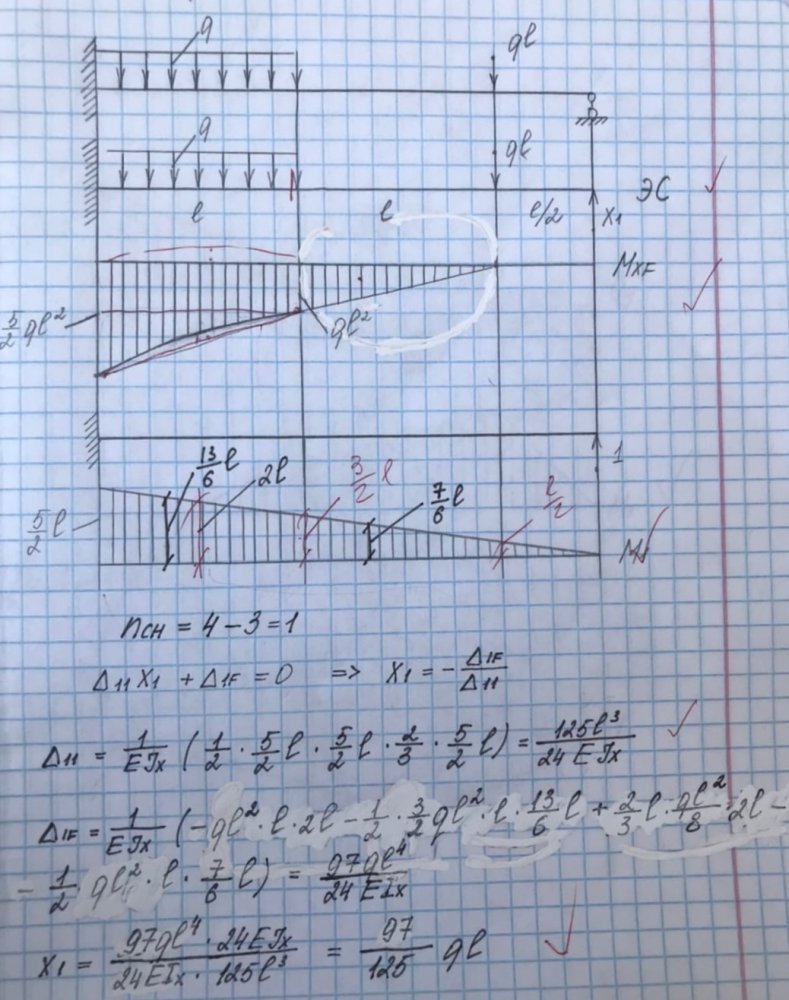 q
ql
q
ql
ЭС
l
l
l/2
X₁
M_XF
5/2 ql²
ql²
1
13/6 l
2l
3/2 l
7/6 l
l/2
5/2 l
M₁
nсн = 4 - 3 = 1
Δ₁₁X₁ + Δ₁F = 0 => X₁ = - Δ₁F/Δ₁₁
Δ₁₁ = 1/EJx (1/2 · 5/2 l · 5/2 l · 2/3 · 5/2 l) = 125l³/24EJx
Δ₁F = 1/EJx (-ql² · l · 2l - 1/2 · 3/2 ql² · l · 13/6 l + 2/3 l · ql²/8 · 2l -
- 1/2 ql² · l · 7/6 l) = 97ql⁴/24EIx
X₁ = 97ql⁴ · 24EJx/24EIx · 125l³ = 97/125 ql